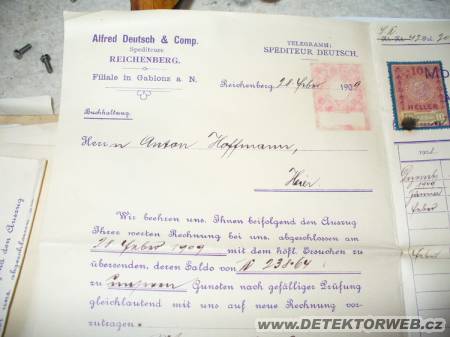 Alfred Deutsch & Comp.
Spediteure
REICHENBERG.
Filiale in Gablonz a N.
TELEGRAMM:
SPEDITEUR DEUTSCH.
Reichenberg, 28 Feber 1909
Buchhaltung.
Herrn Anton Hoffmann,
Hier.
Wir beehren uns, Ihnen beifolgend den Auszug
Ihrer werten Rechnung bei uns, abgeschlossen am
28 Feber 1909 mit dem höfl. Ersuchen zu
übersenden, deren Saldo von K 238·64
zu unseren Gunsten nach gefälliger Prüfung
gleichlautend mit uns auf neue Rechnung vor-
zutragen.
10
HELLER
1908
Jänner
Feber
den Auszug
abgeschlossen am
www.DETEKTORWEB.cz